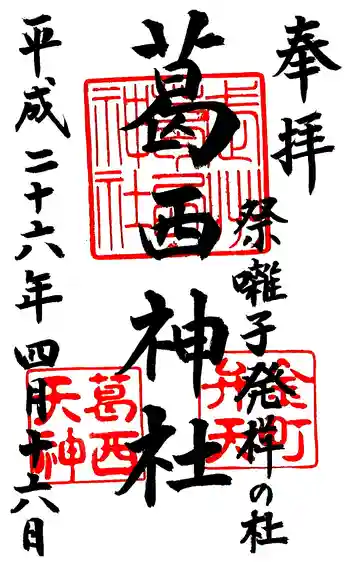 奉拝
祭囃子発祥の杜
葛西神社
平成二十六年四月十六日
金町
弁天
葛西
天神